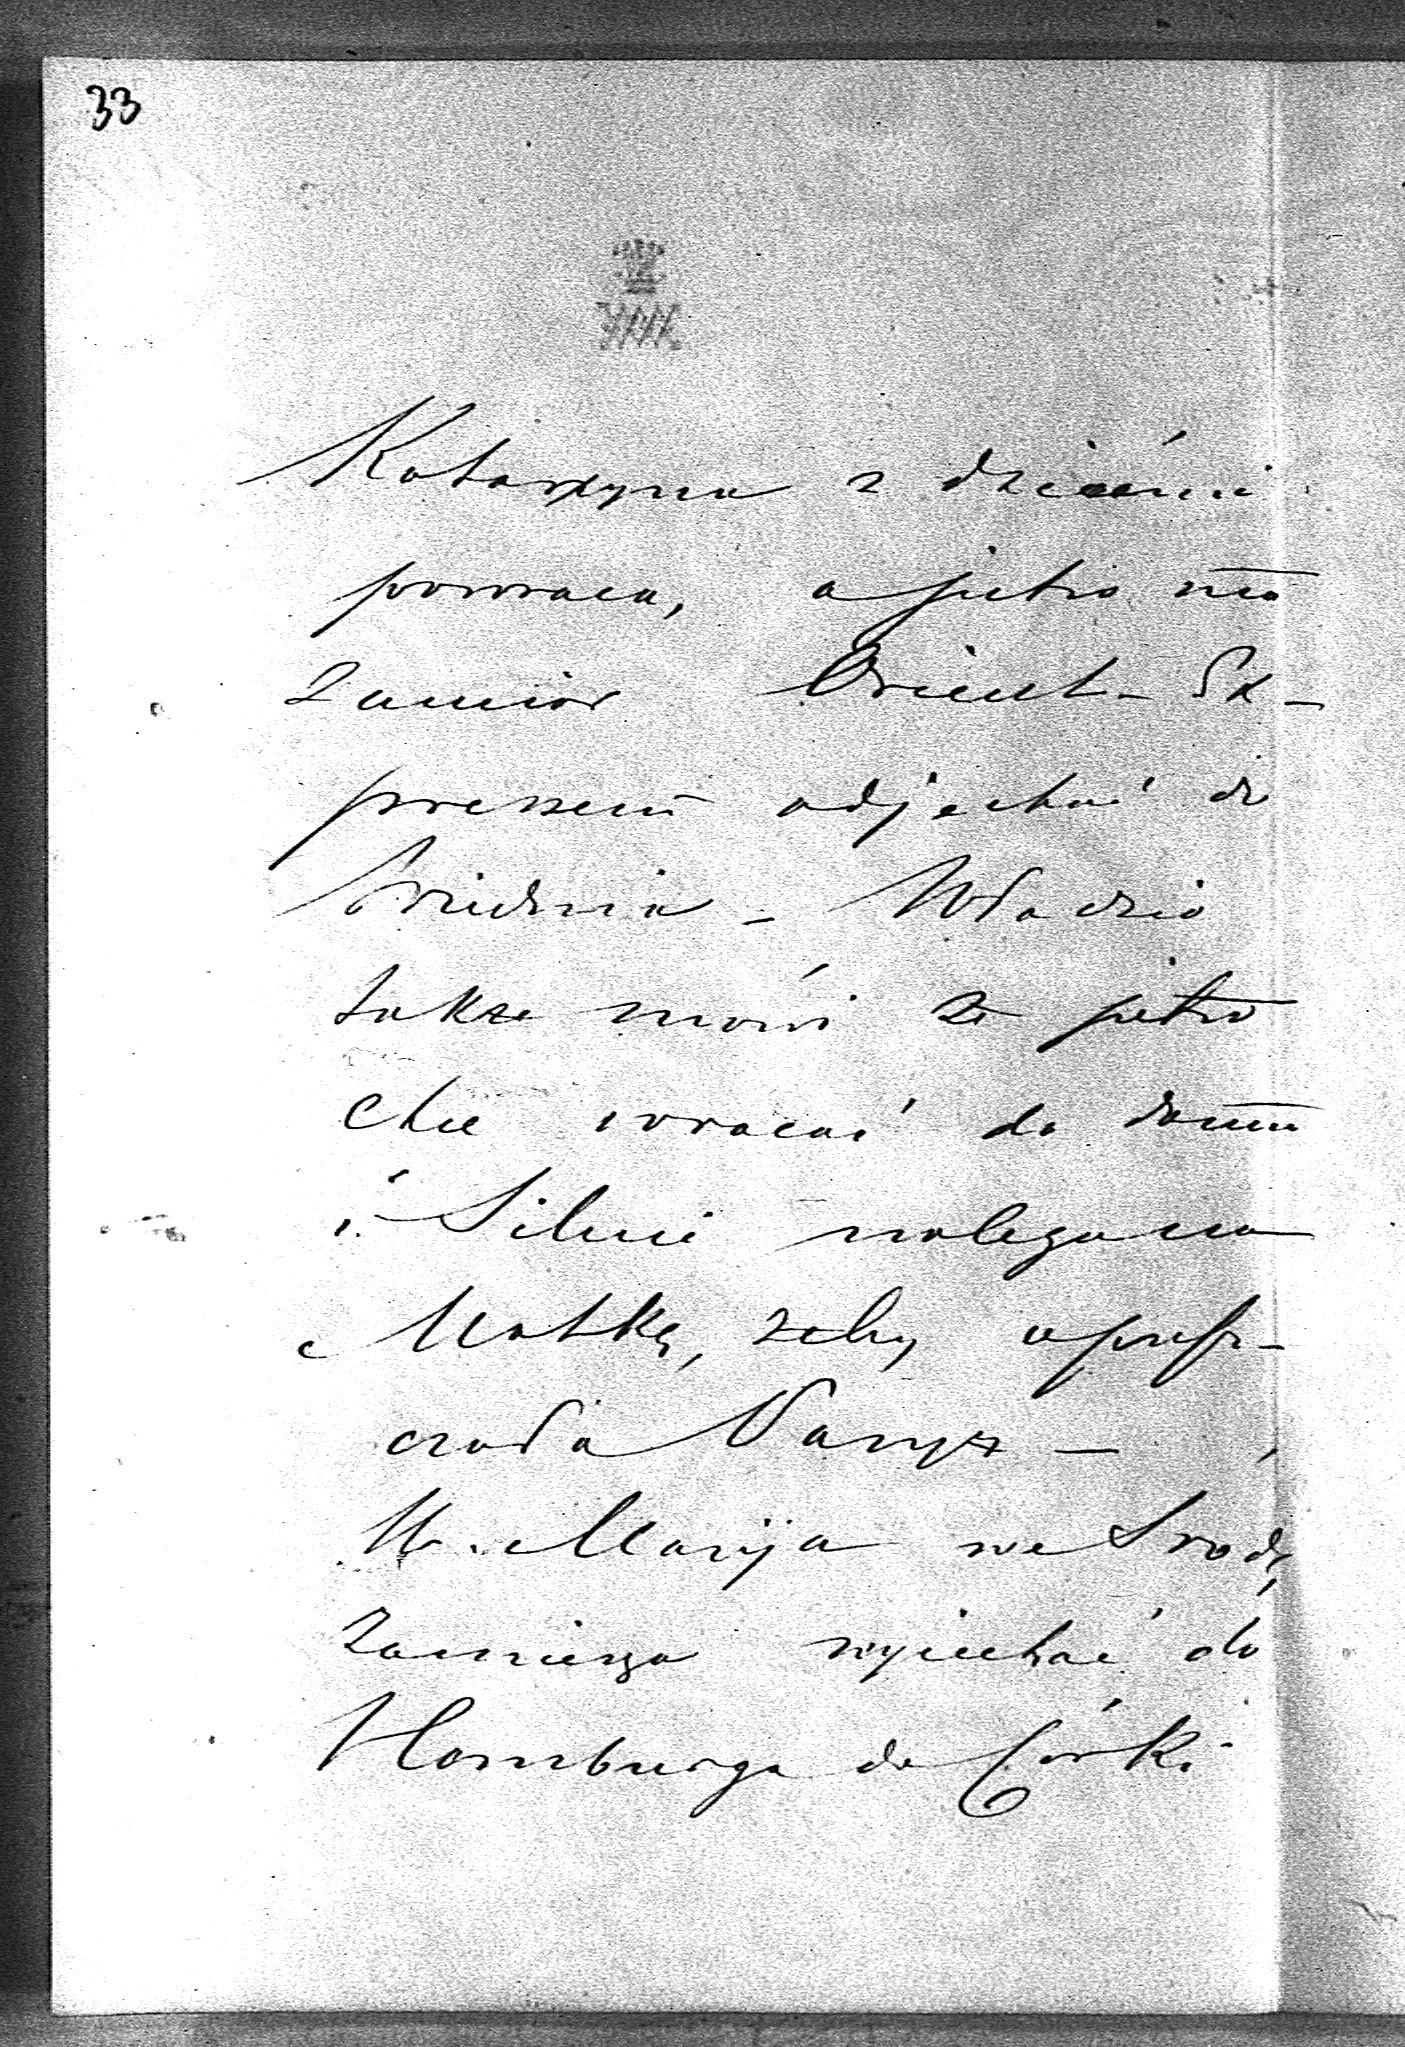 33
Katarzyna z dziećmi
powraca, a jutro ma
zamiar Orient-Ex-
pressem odjechać do
Wiednia - Władzio
także mówi ze jutro
chce wracać do domu
i Silvie nalega na
Matkę, zeby opuś-
ciła Paryz -
Marija we Srodę
zamierza wyjechać do
Homburga do Córki